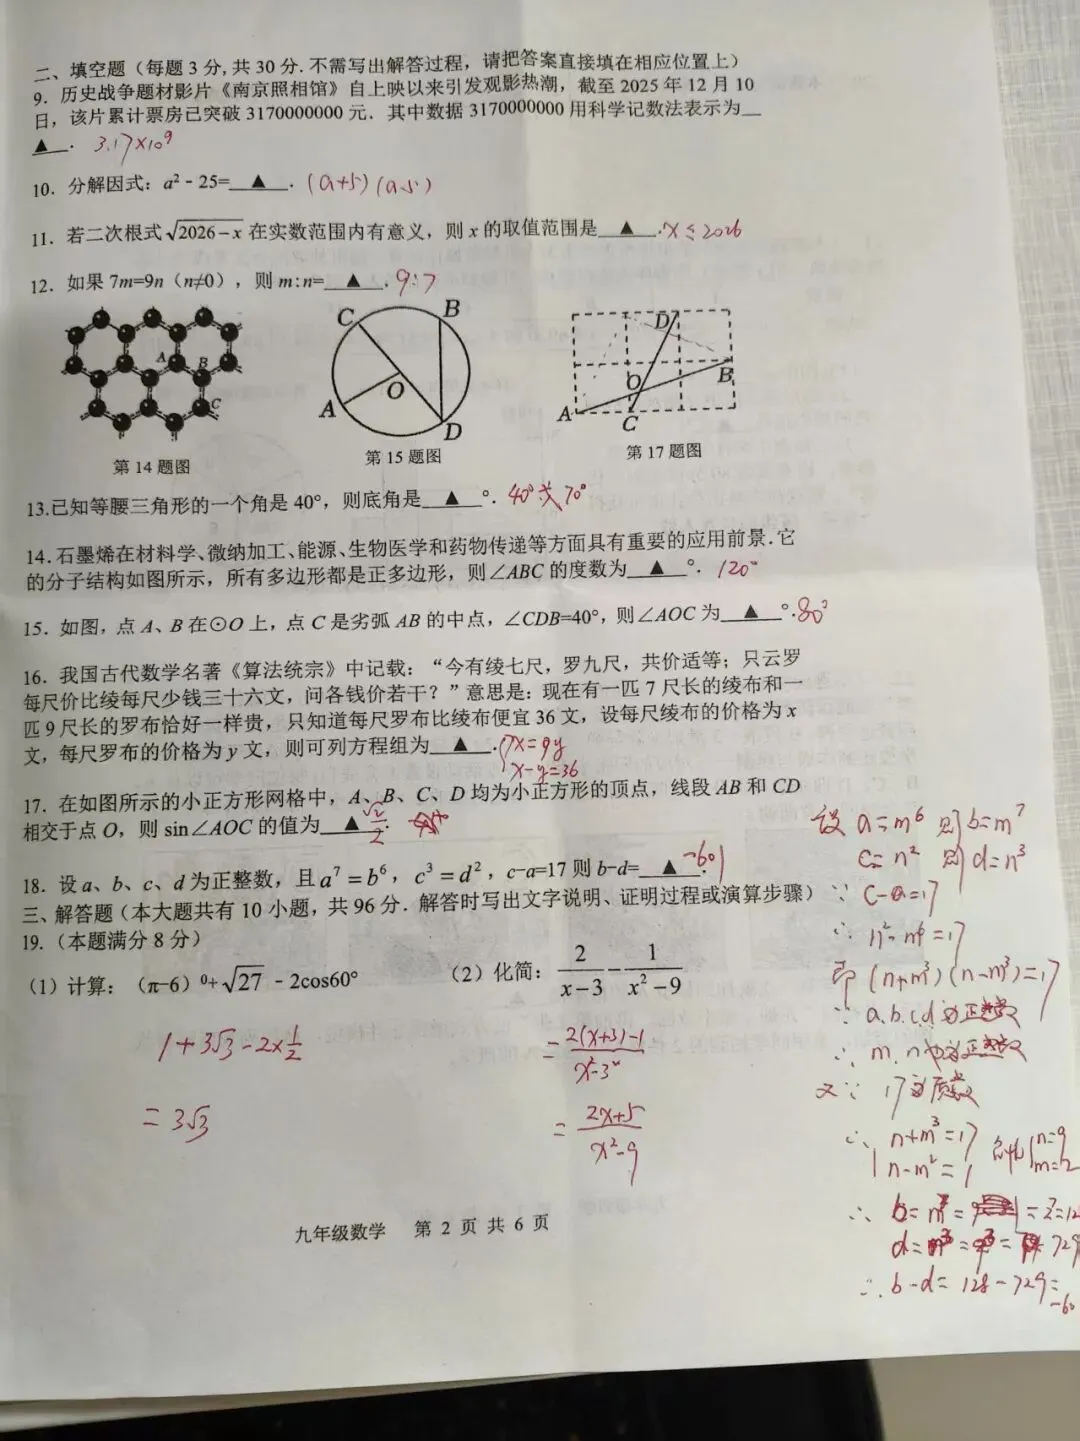 二、填空题（每题3分,共30分.不需写出解答过程，请把答案直接填在相应位置上）
9．历史战争题材影片《南京照相馆》自上映以来引发观影热潮，截至2025年12月10
日，该片累计票房已突破3170000000元．其中数据3170000000用科学记数法表示为
▲．3.17×10⁹
10．分解因式：a²－25=▲．(a+5)(a-5)
11．若二次根式√(2026－x)在实数范围内有意义，则x的取值范围是▲．x≤2026
12．如果7m=9n（n≠0），则m:n=▲．9:7
A B C
第14题图
C B O A D
第15题图
D O B A C
第17题图
13.已知等腰三角形的一个角是40°，则底角是▲°．40°或70°
14.石墨烯在材料学、微纳加工、能源、生物医学和药物传递等方面具有重要的应用前景.它
的分子结构如图所示，所有多边形都是正多边形，则∠ABC的度数为▲°．120°
15．如图，点A、B在⊙O上，点C是劣弧AB的中点，∠CDB=40°，则∠AOC为▲°.80°
16．我国古代数学名著《算法统宗》中记载：“今有绫七尺，罗九尺，共价适等；只云罗
每尺价比绫每尺少钱三十六文，问各钱价若干？”意思是：现在有一匹7尺长的绫布和一
匹9尺长的罗布恰好一样贵，只知道每尺罗布比绫布便宜36文，设每尺绫布的价格为x
文，每尺罗布的价格为y文，则可列方程组为▲．{7x=9y
x-y=36
17．在如图所示的小正方形网格中，A、B、C、D均为小正方形的顶点，线段AB和CD
相交于点O，则sin∠AOC的值为▲．√2/2
18．设a、b、c、d为正整数，且a⁷=b⁶，c³=d²，c-a=17则b-d=▲．-601
设a=m⁶ 则b=m⁷
c=n² 则d=n³
∵c-a=17
∴n²-m⁶=17
即(n+m³)(n-m³)=17
∵a.b.c.d为正整数
∴m.n也为正整数
又∵17为质数
∴{n+m³=17
n-m²=1
{n=9
m=2
∴b=m⁷=
d= 729
∴b-d=128-729=
三、解答题（本大题共有10小题，共96分．解答时写出文字说明、证明过程或演算步骤）
19．（本题满分8分）
（1）计算：（π-6）⁰+√27－2cos60°
1+3√3-2×1/2
=3√3
（2）化简：2/(x-3)－1/(x²-9)
=(2(x+3)-1)/(x²-3²)
=(2x+5)/(x²-9)
九年级数学 第2页共6页